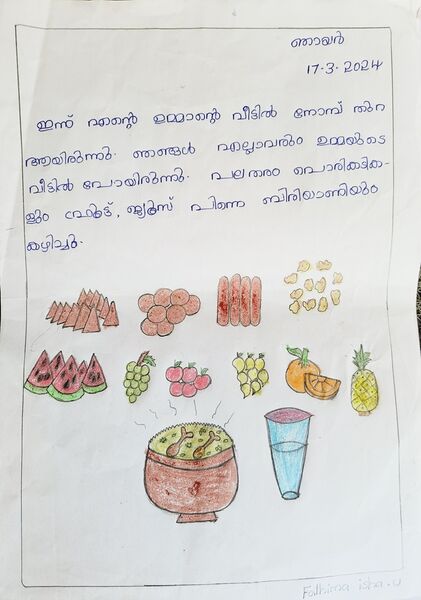 ഞായർ
17-3-2024
ഇന്ന് എന്റെ ഉമ്മാന്റെ വീട്ടിൽ നോമ്പ് തുറ
ആയിരുന്നു. ഞങ്ങൾ എല്ലാവരും ഉമ്മയുടെ
വീട്ടിൽ പോയിരുന്നു. പലതരം പൊരിക്കടിക-
ളും ഫ്രൂട്ട്, ജ്യൂസ് പിന്നെ ബിരിയാണിയും
കഴിച്ചു.
Fathima isba.u